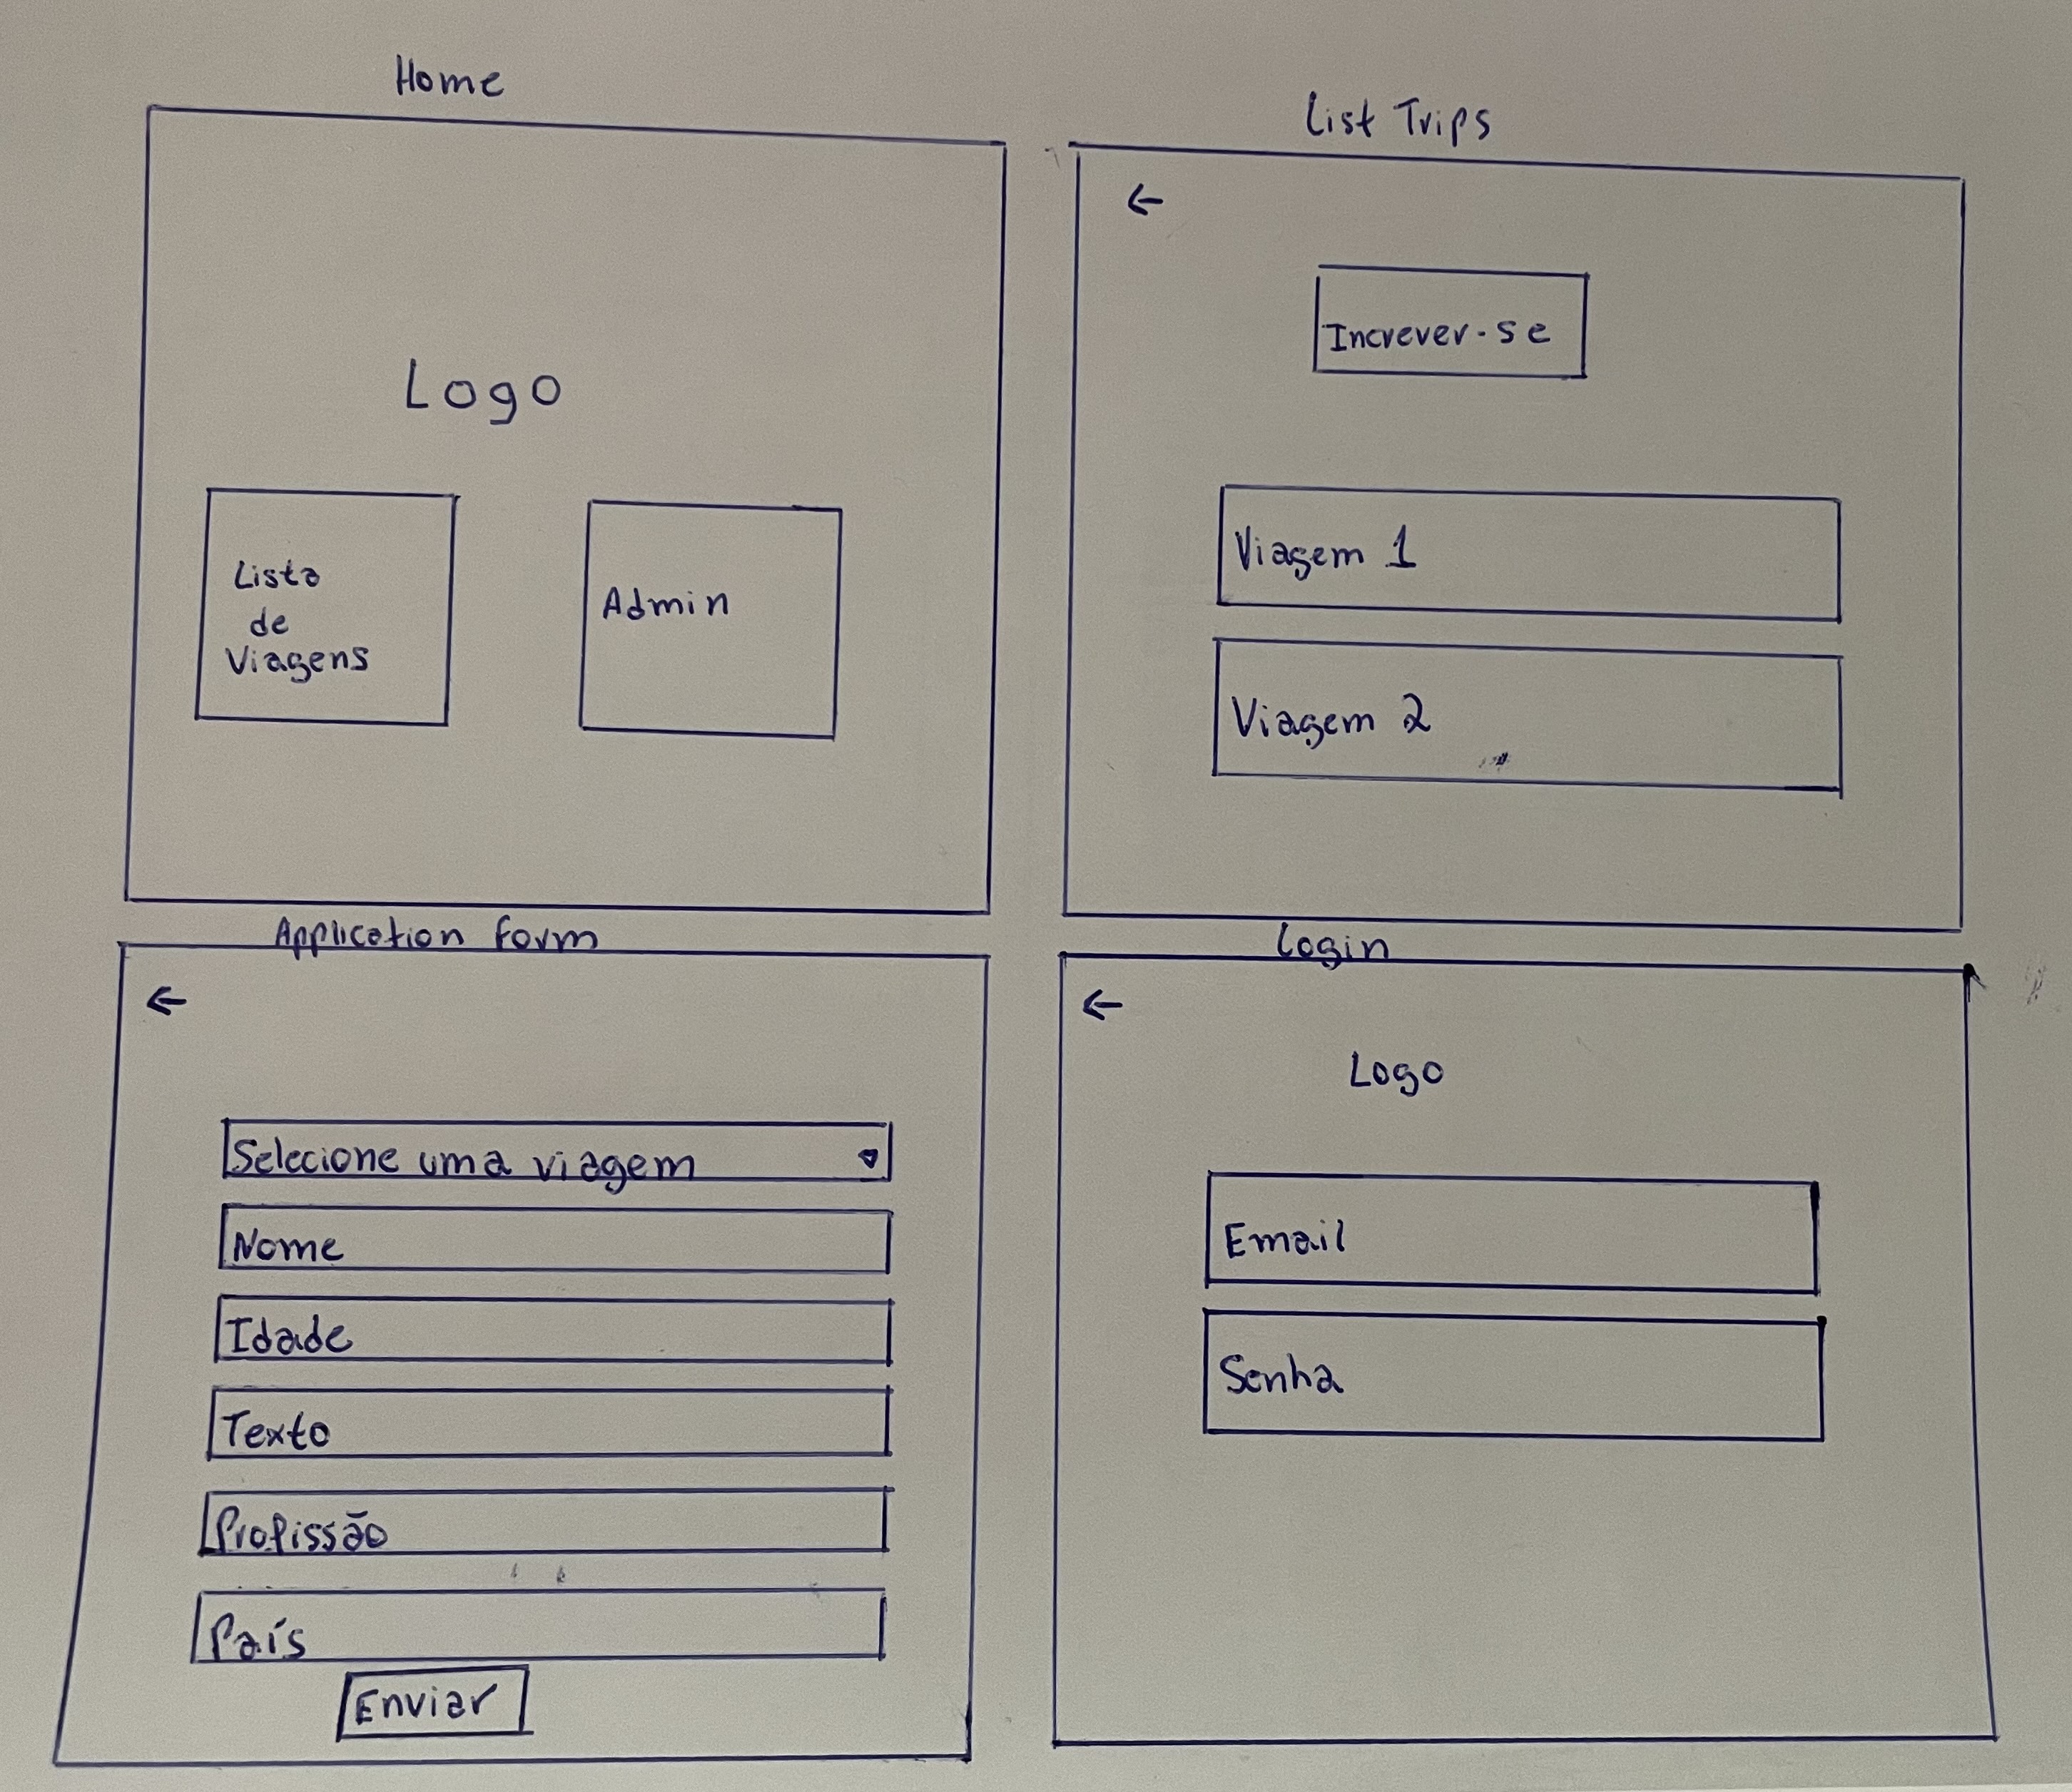 Home
Logo
Lista
de
Viagens
Admin
List Trips
←
Increver-se
Viagem 1
Viagem 2
Application Form
←
Selecione uma viagem
Nome
Idade
Texto
Profissão
País
Enviar
Login
←
Logo
Email
Senha